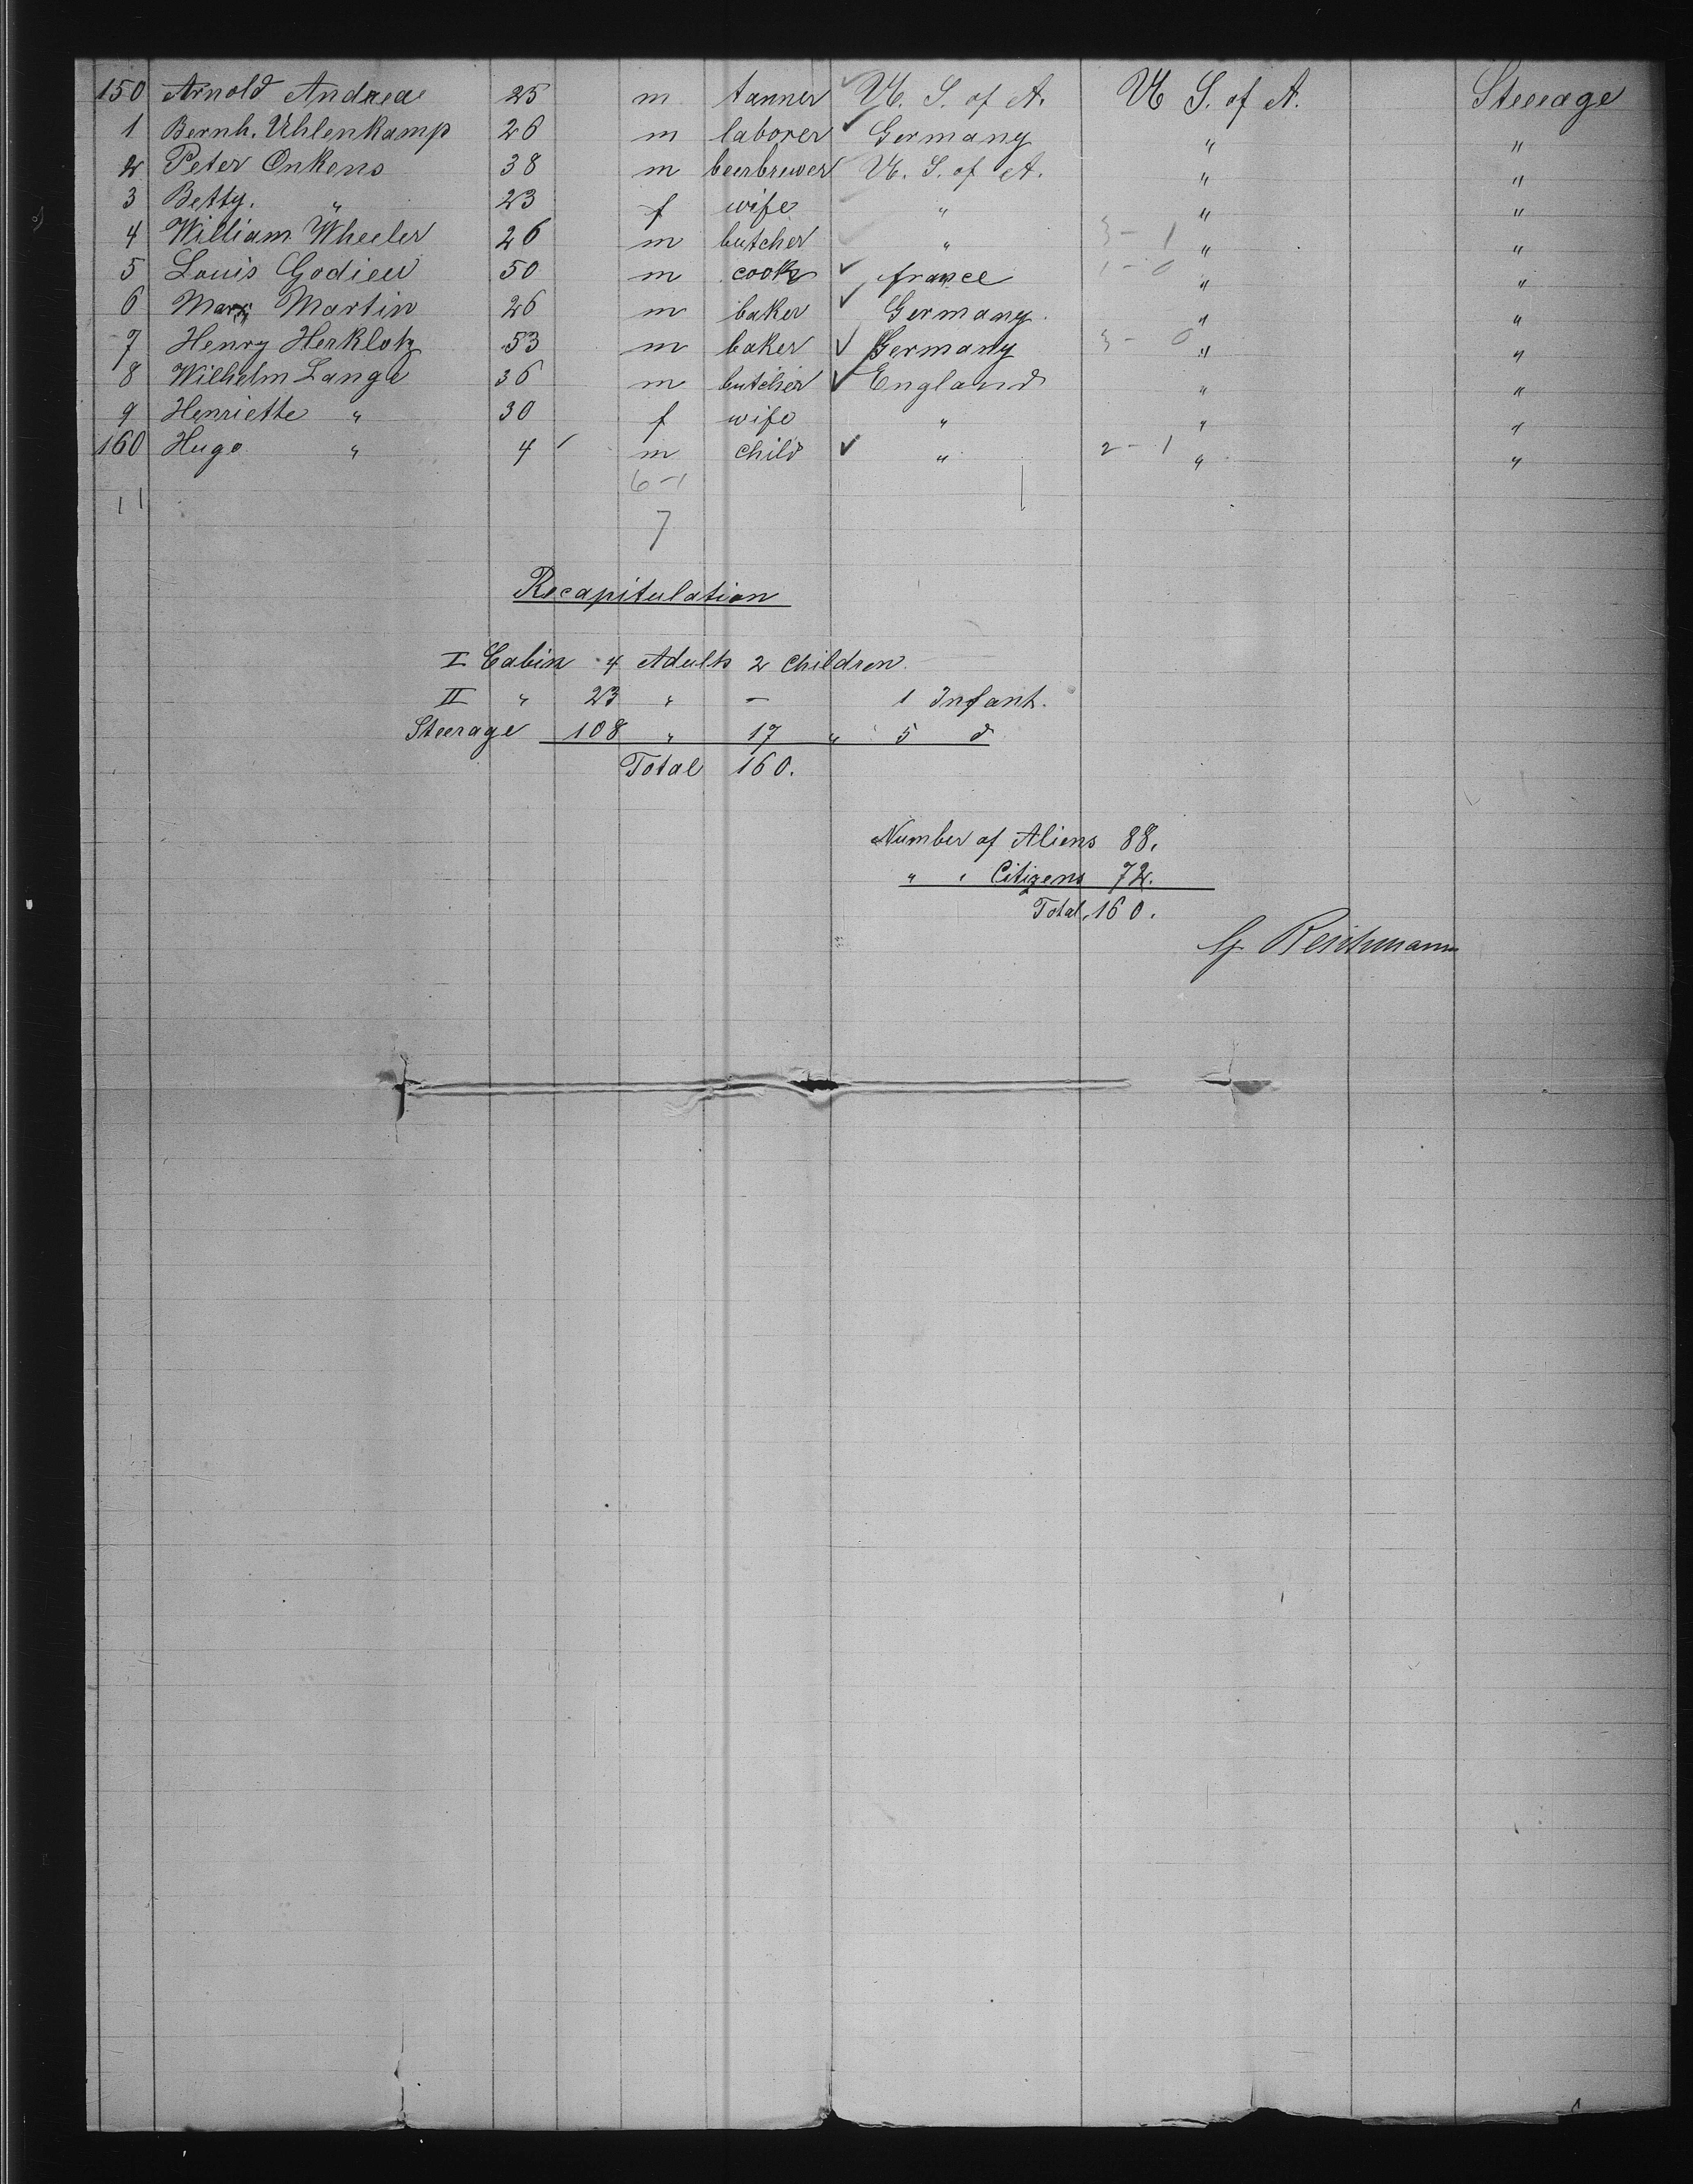 150 Arnold Andreae 25 m tanner U. S. of A. U S. of A. Steerage
1 Bernh. Uhlenkamp 26 m laborer Germany " "
2 Peter Onkens 38 m beerbrewer U. S. of A. " "
3 Betty. " 23 f wife " " "
4 William Wheeler 26 m butcher " 3 - 1 " "
5 Louis Godieu 50 m cook france 1 - 0 " "
6 Marx Martin 26 m baker Germany. " "
7 Henry Herklotz 53 m baker Germany 3 - 0 " "
8 Wilhelm Lange 36 m butcher England " "
9 Henriette " 30 f wife " " "
160 Hugo " 4 m child " 2 - 1 " "
6-1
11
7
Recapitulation
I Cabin 4 Adults 2 Children
II " 23 " - 1 Infant.
Steerage 108 " 17 " 5 d
Total 160.
Number of Aliens 88.
" " Citizens 72.
Total, 160.
Reichmann